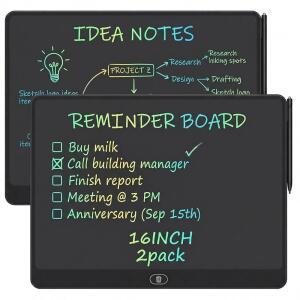 IDEA NOTES
PROJECT 2
Research
Research
hiking spots
Design
Drafting
Sketch logo
Sketch logo ideas
REMINDER BOARD
Buy milk
Call building manager
Finish report
Meeting @ 3 PM
Anniversary (Sep 15th)
16INCH
2pack